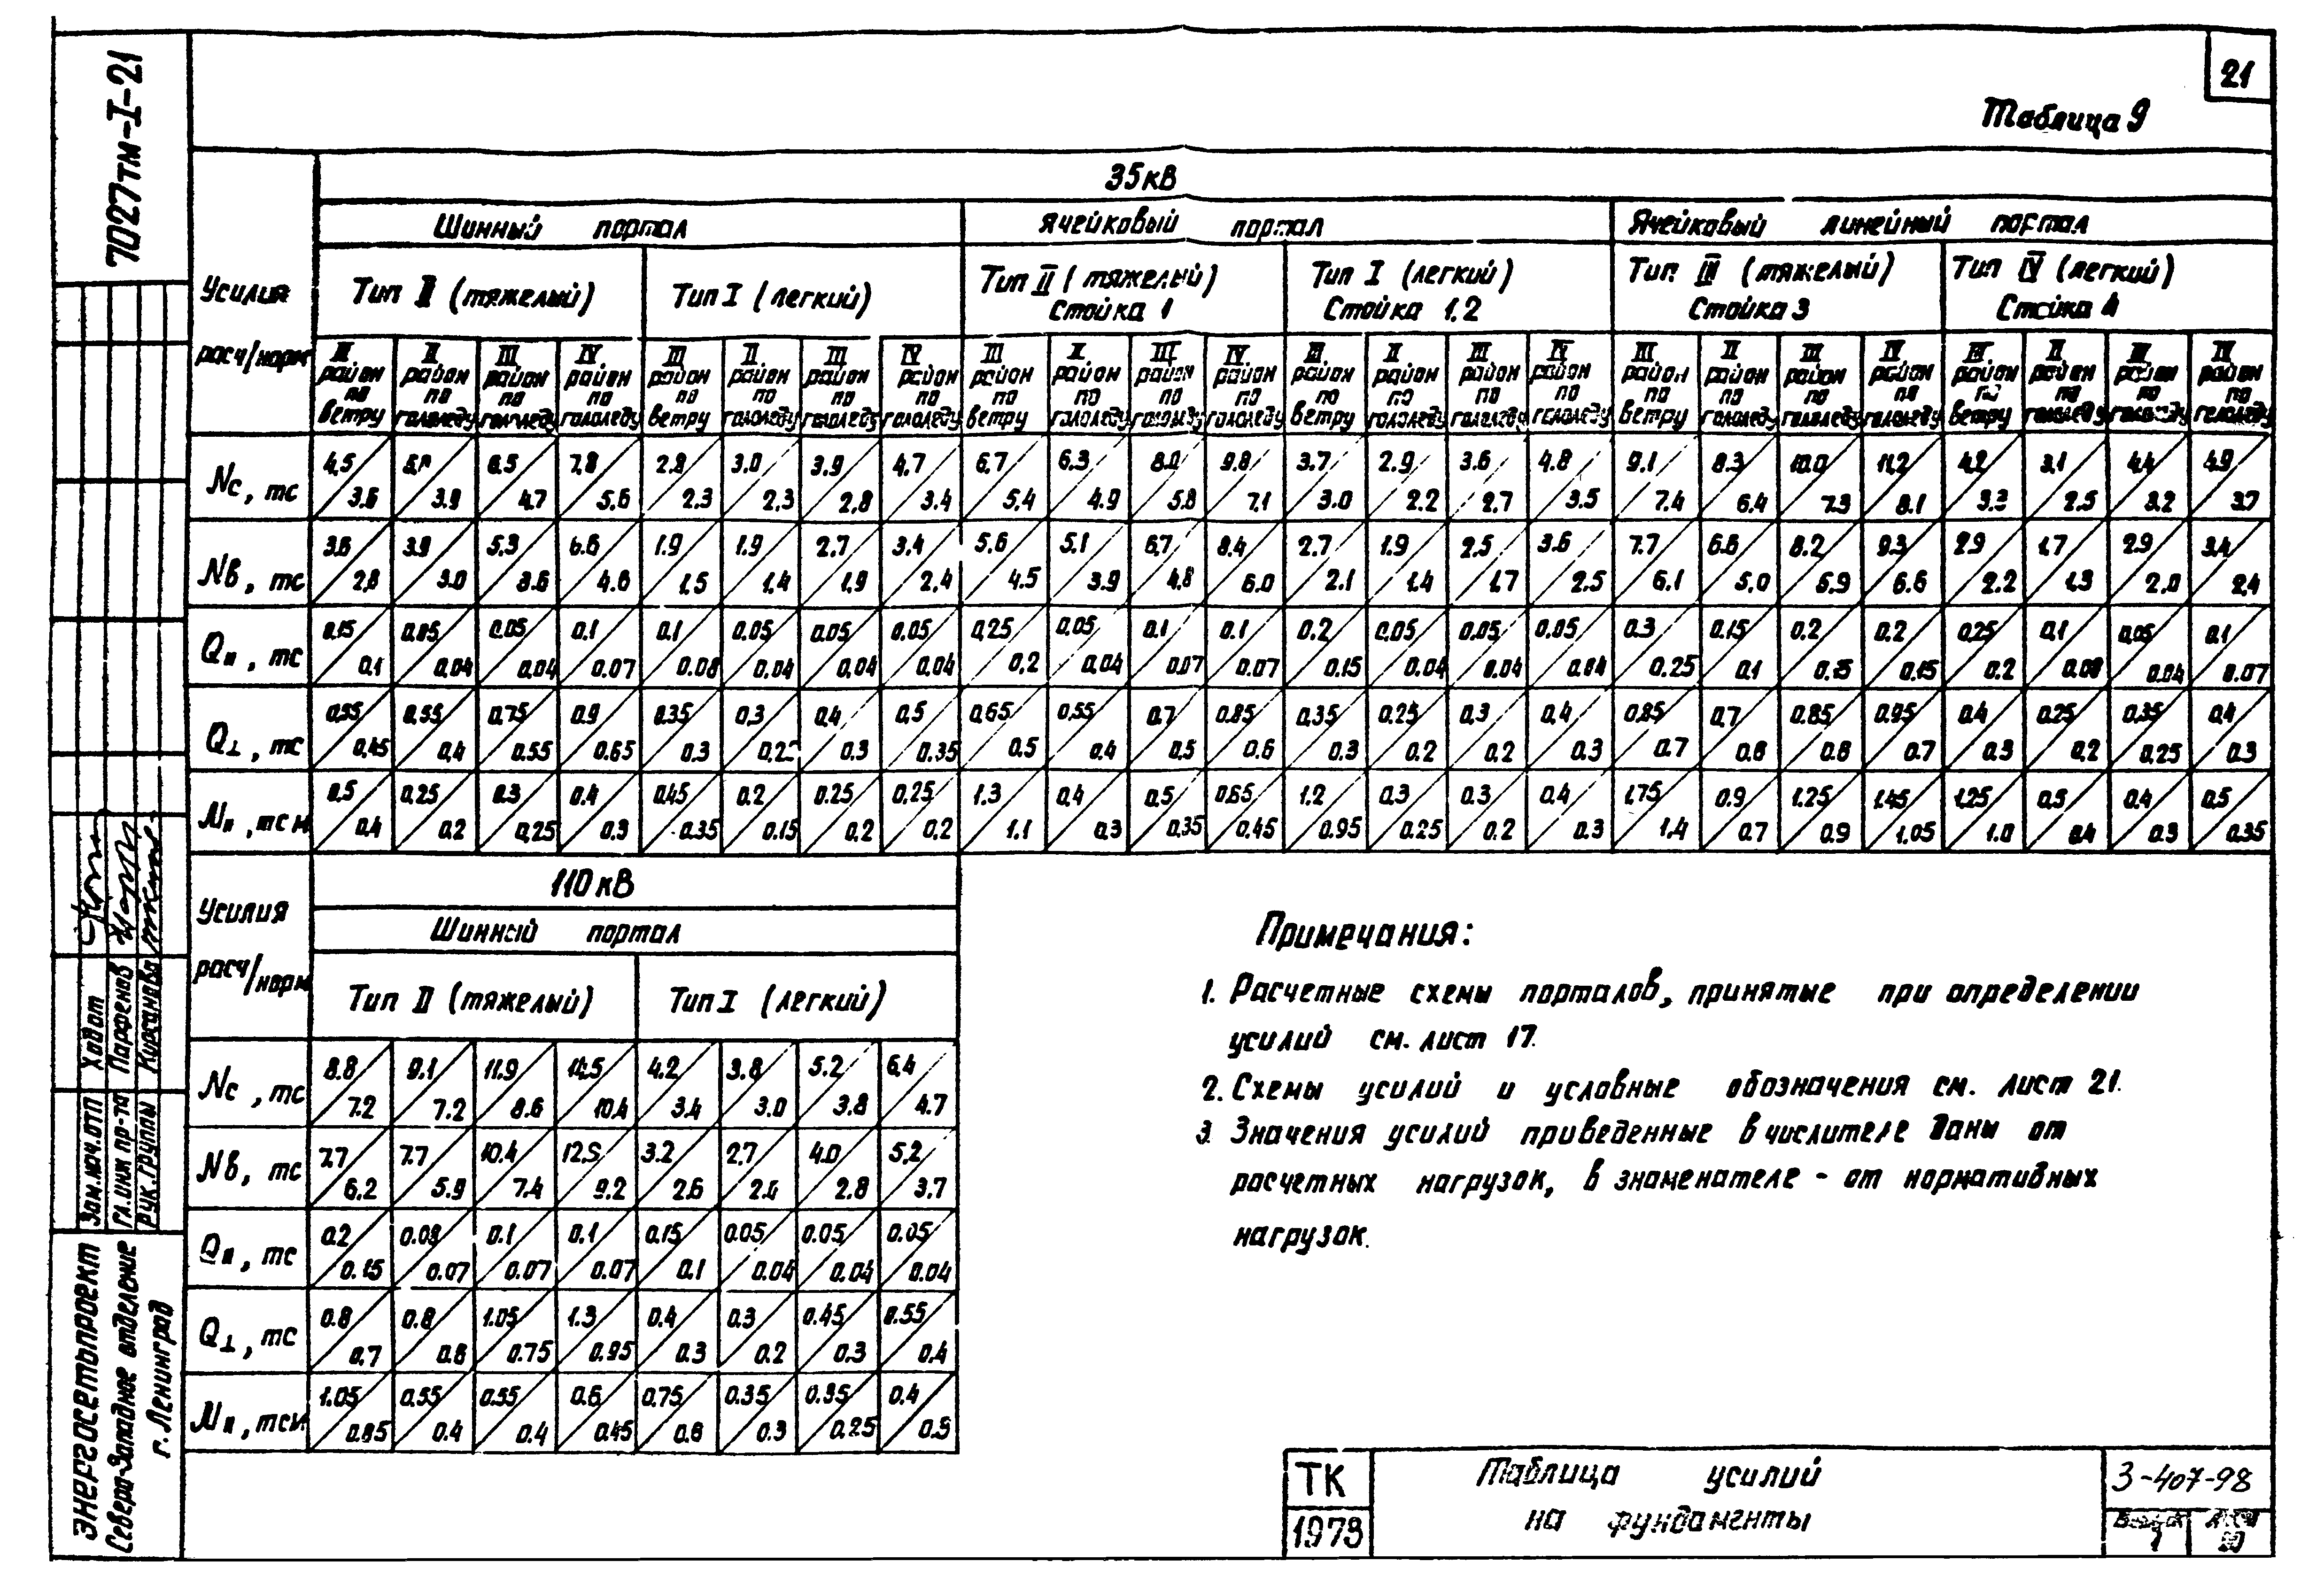 21
Таблица 9
7027тм-I-21
35кВ
Шинный портал Ячейковый портал Ячейковый линейный портал
Усилия расч/норм
Тип II (тяжелый) Тип I (легкий) Тип II (тяжелый) Стойка 1 Тип I (легкий) Стойка 1.2 Тип III (тяжелый) Стойка 3 Тип IV (легкий) Стойка 4
III район по ветру II район по гололеду III район по гололеду IV район по гололеду III район по ветру II район по гололеду III район по гололеду IV район по гололеду III район по ветру II район по гололеду III район по гололеду IV район по гололеду III район по ветру II район по гололеду III район по гололеду IV район по гололеду III район по ветру II район по гололеду III район по гололеду IV район по гололеду III район по ветру II район по гололеду III район по гололеду IV район по гололеду
Nс, тс 4,5/3.6 3.9 6.5/4.7 7.8/5.6 2.8/2.3 3.0/2.3 3.9/2.8 4.7/3.4 6.7/5.4 6.3/4.9 8.0/5.8 9.8/7.1 3.7/3.0 2.9/2.2 3.6/2.7 4.8/3.5 9.1/7.4 8.3/6.4 10.0/7.3 11.2/8.1 4.2/3.3 3.1/2.5 4.4/3.2 4.9/3.7
Nв, тс 3.6/2.8 3.9/3.0 5.3/3.6 6.6/4.6 1.9/1.5 1.9/1.4 2.7/1.9 3.4/2.4 5.6/4.5 5.1/3.9 6.7/4.8 8.4/6.0 2.7/2.1 1.9/1.4 2.5/1.7 3.6/2.5 7.7/6.1 6.6/5.0 8.2/5.9 9.3/6.6 2.9/2.2 1.7/1.3 2.9/2.0 3.4/2.4
Qıı, тс 0.15/0.1 0.05/0.04 0.05/0.04 0.1/0.07 0.1/0.08 0.05/0.04 0.05/0.04 0.05/0.04 0.25/0.2 0.05/0.04 0.1/0.07 0.1/0.07 0.2/0.15 0.05/0.04 0.05/0.04 0.05/0.04 0.3/0.25 0.15/0.1 0.2/0.15 0.2/0.15 0.25/0.2 0.1/0.08 0.05/0.04 0.1/0.07
Q⊥, тс 0.55/0.45 0.55/0.4 0.75/0.55 0.9/0.65 0.35/0.3 0.3 0.4/0.3 0.5/0.35 0.65/0.5 0.55/0.4 0.7/0.5 0.85/0.6 0.35/0.3 0.25/0.2 0.3/0.2 0.4/0.3 0.85/0.7 0.7/0.6 0.85/0.6 0.95/0.7 0.4/0.3 0.25/0.2 0.35/0.25 0.4/0.3
Mıı, тсм 0.5/0.4 0.25/0.2 0.3/0.25 0.4/0.3 0.45/0.35 0.2/0.15 0.25/0.2 0.25/0.2 1.3/1.1 0.4/0.3 0.5/0.35 0.65/0.45 1.2/0.95 0.3/0.25 0.3/0.2 0.4/0.3 1.75/1.4 0.9/0.7 1.25/0.9 1.45/1.05 1.25/1.0 0.5/0.4 0.4/0.3 0.5/0.35
Усилия расч/норм
110 кВ
Шинный портал
Тип II (тяжелый) Тип I (легкий)
Nс, тс 8.8/7.2 9.1/7.2 11.9/8.6 14.5/10.4 4.2/3.4 3.8/3.0 5.2/3.8 6.4/4.7
Nв, тс 7.7/6.2 7.7/5.9 10.4/7.4 12.5/9.2 3.2/2.6 2.7/2.0 4.0/2.8 5.2/3.7
Qıı, тс 0.2/0.15 0.09/0.07 0.1/0.07 0.1/0.07 0.15/0.1 0.05/0.04 0.05/0.04 0.05/0.04
Q⊥, тс 0.8/0.7 0.8/0.6 1.05/0.75 1.3/0.95 0.4/0.3 0.3/0.2 0.45/0.3 0.55/0.4
Mıı, тсм 1.05/0.85 0.55/0.4 0.55/0.4 0.6/0.45 0.75/0.6 0.35/0.3 0.35/0.25 0.4/0.3
Примечания:
1. Расчетные схемы порталов, принятые при определении
усилий см. лист 17.
2. Схемы усилий и условные обозначения см. лист 21.
3. Значения усилий приведенные в числителе даны от
расчетных нагрузок, в знаменателе - от нормативных
нагрузок.
Зам.нач.отп Ходот
Гл.инж пр-та Парфенов
Рук.группы Курсанова
Энергосетьпроект
Северо-Западное отделение
г. Ленинград
ТК
1973
Таблица усилий
на фундаменты
3-407-98
Выпуск 1
Лист 20